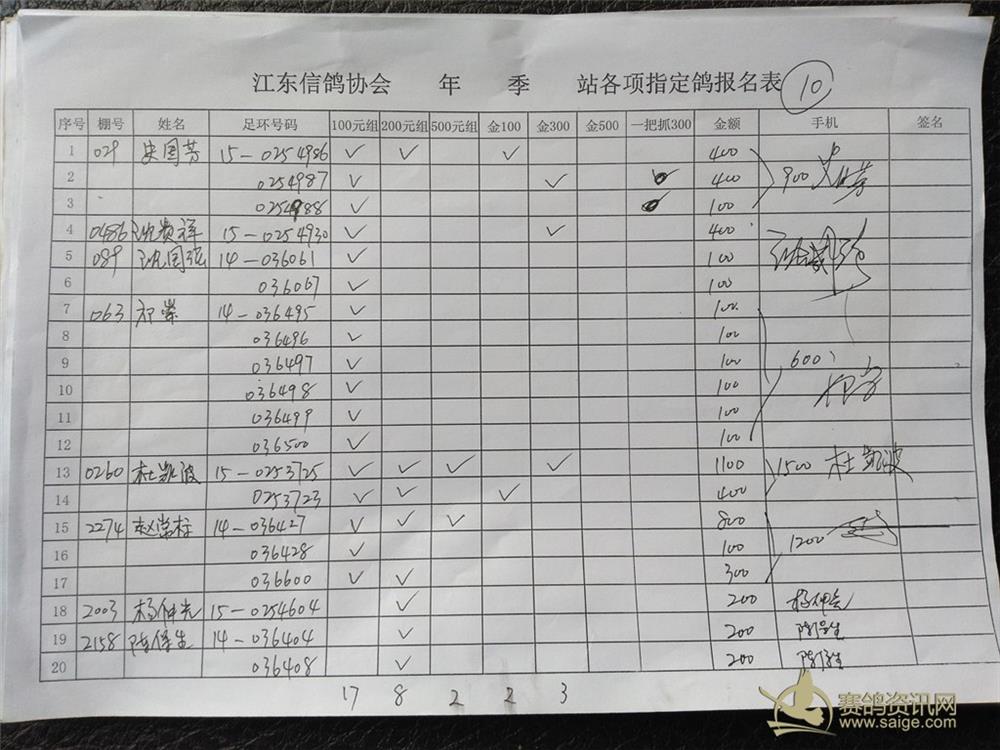 江东信鸽协会 年 季 站各项指定鸽报名表 10
序号 棚号 姓名 足环号码 100元组 200元组 500元组 金100 金300 金500 一把抓300 金额 手机 签名
1 029 史国芳 15-0254986 ✓ ✓ ✓ 400
2 0254987 ✓ ✓ 400 900
3 0254988 ✓ 100
4 0486 沈贵祥 15-0254930 ✓ ✓ 400
5 089 沈国强 14-036061 ✓ 100
6 036067 ✓ 100
7 063 14-036495 ✓ 100
8 036496 ✓ 100
9 036497 ✓ 100 600
10 036498 ✓ 100
11 036499 ✓ 100
12 036500 ✓ 100
13 0260 杜凯波 15-0253725 ✓ ✓ ✓ ✓ 1100 1500 杜凯波
14 0253723 ✓ ✓ ✓ 400
15 2274 赵常标 14-036427 ✓ ✓ ✓ 800
16 036428 ✓ 100 1200
17 036600 ✓ ✓ 300
18 2003 杨仲光 15-0254604 ✓ 200
19 2158 陈保生 14-036404 ✓ 200
20 036408 ✓ 200
17 8 2 2 3
赛鸽资讯网
www.saige.com